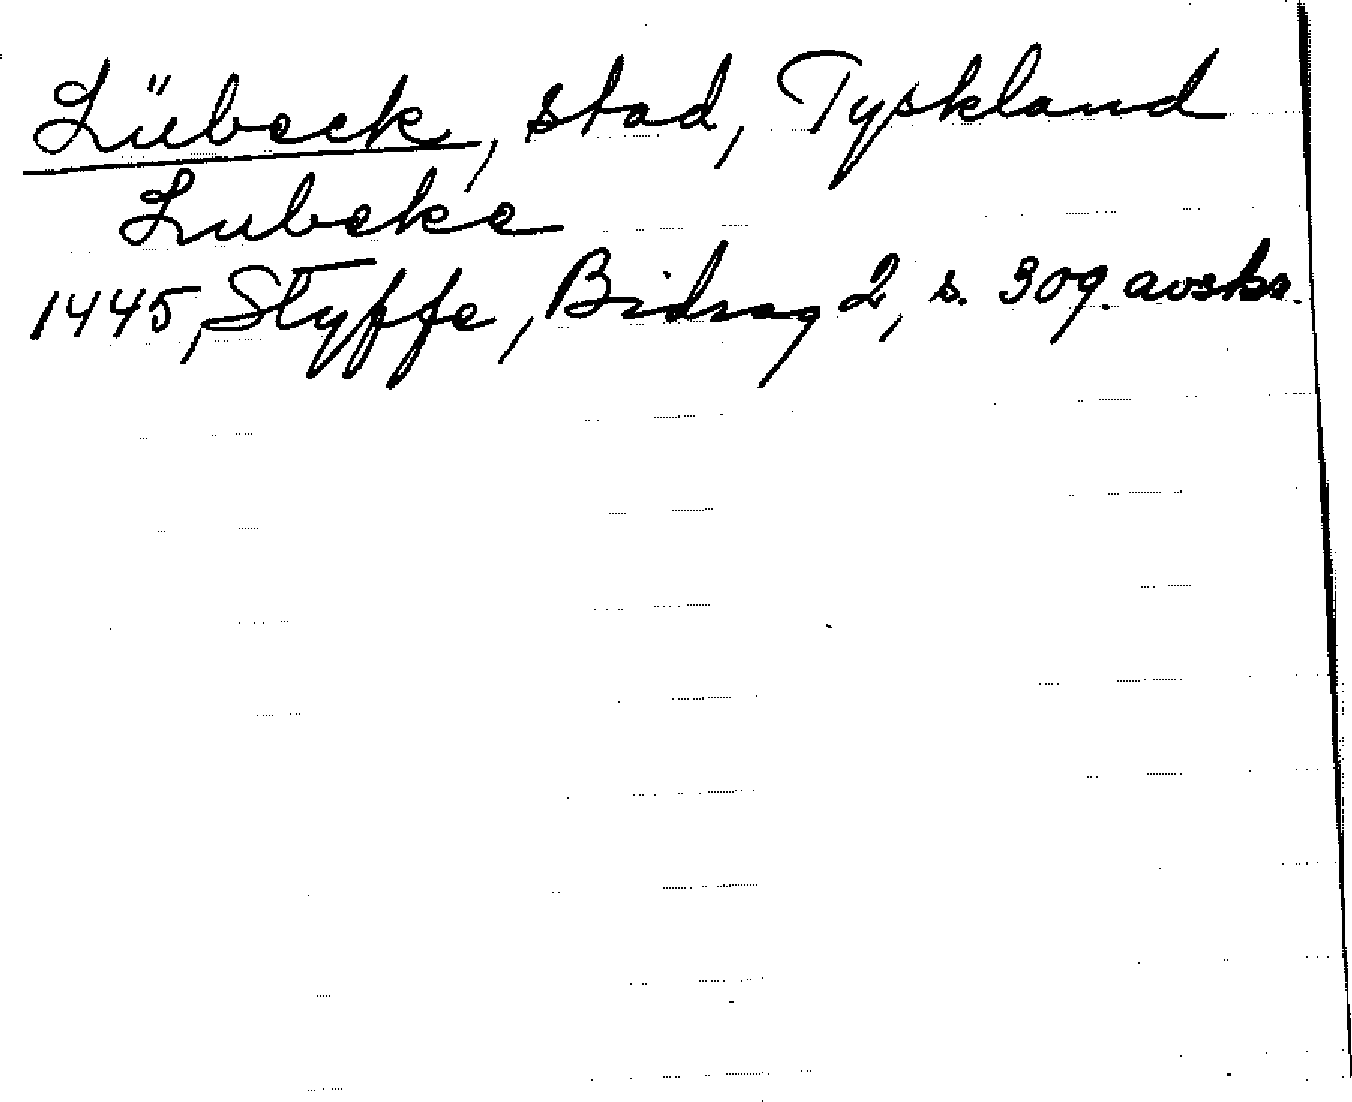 Lübeck, stad, Tyskland
Lubeke
1445, Styffe, Bidrag 2, s. 309. avskr.